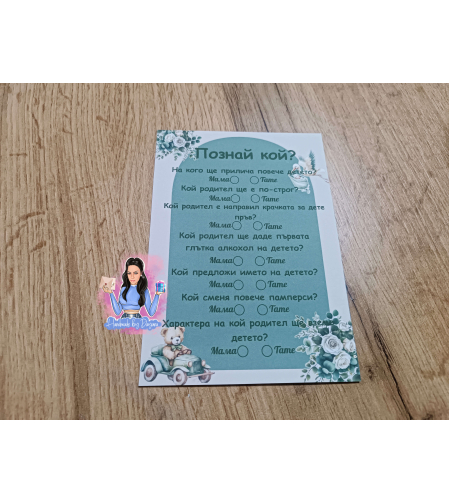 Познай кой?
На кого ще прилича повече детето?
Мама Тате
Кой родител ще е по-строг?
Мама Тате
Кой родител е направил крачката за дете
пръв?
Мама Тате
Кой родител ще даде първата
глътка алкохол на детето?
Мама Тате
Кой предложи името на детето?
Мама Тате
Кой сменя повече памперси?
Мама Тате
Характера на кой родител ще вземе
детето?
Мама Тате